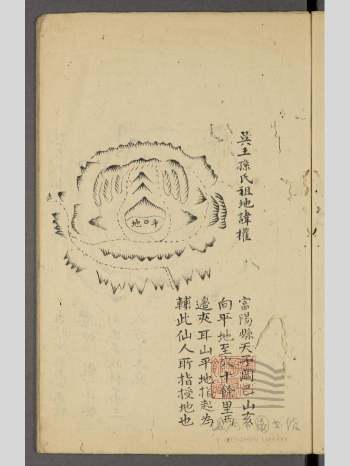 吳王孫氏祖地諱權
富陽縣天子崗已山亥
向平地至 十餘里兩
邊夾耳山平地指起為
輔此仙人所指授地也
平口地